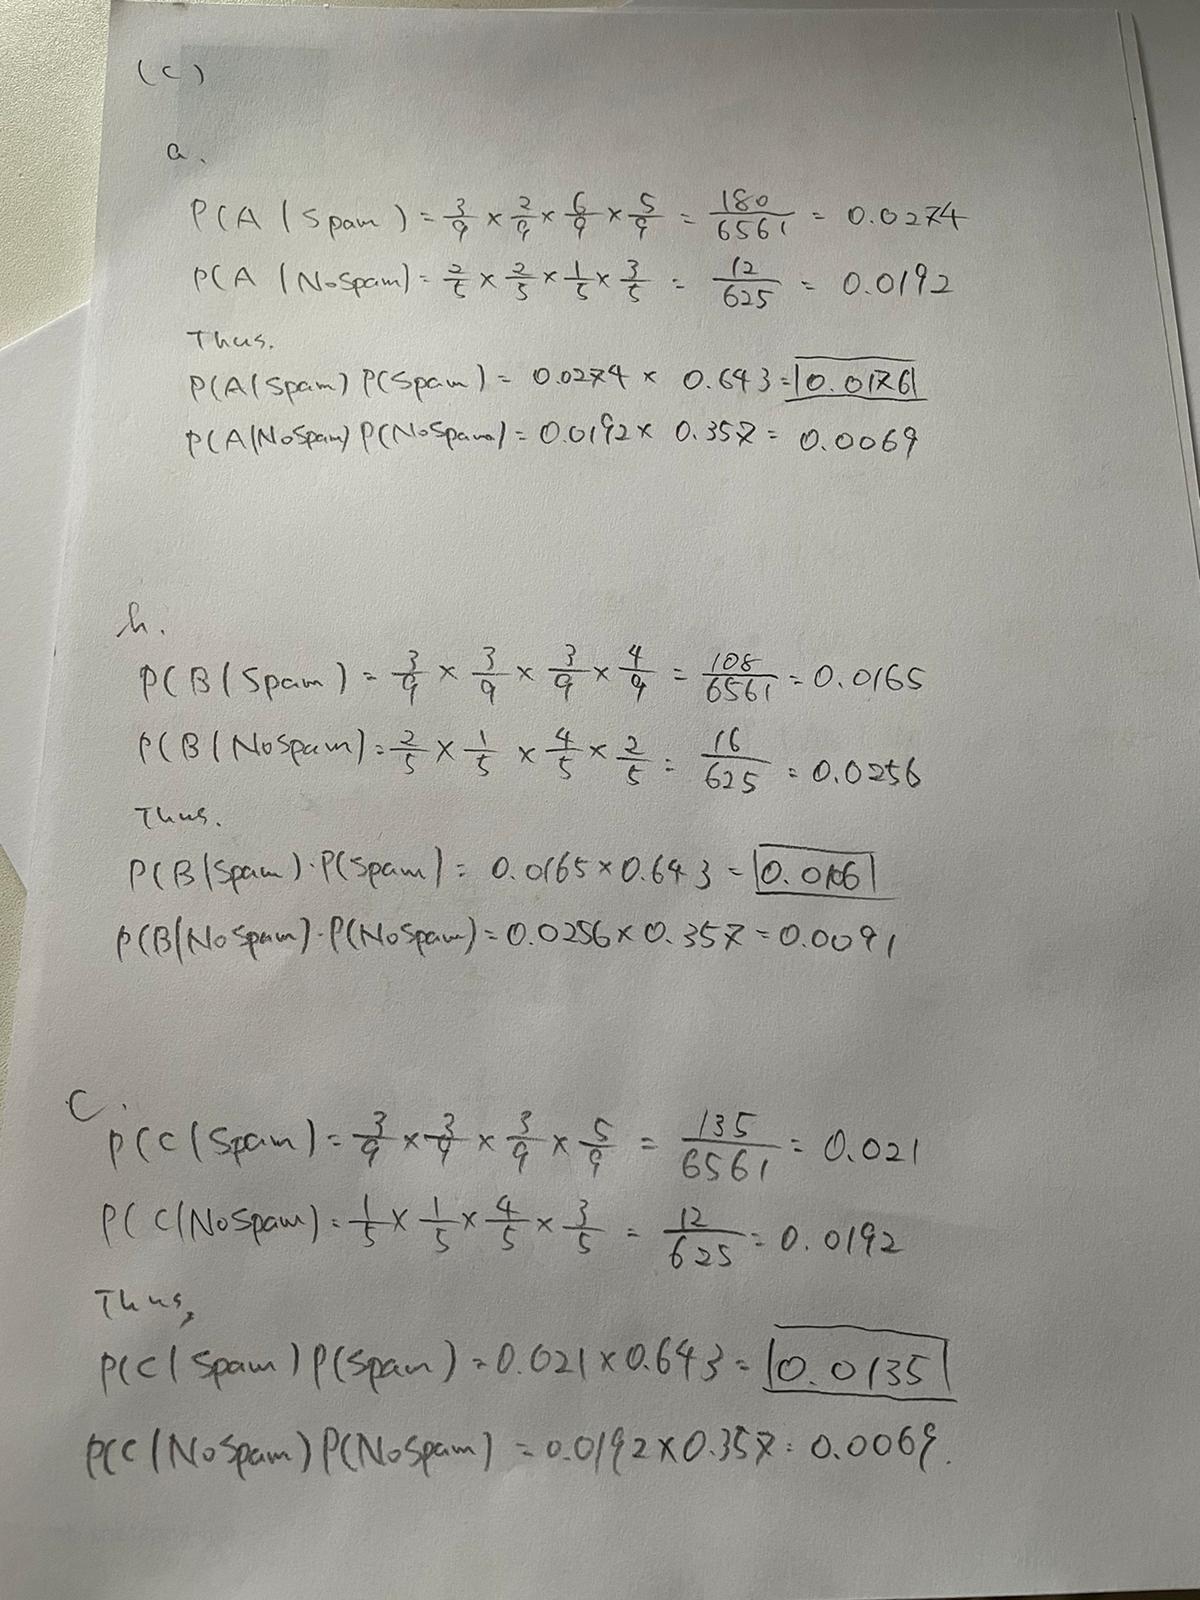 (c)
a.
P(A|Spam) = 3/9 × 2/9 × 6/9 × 5/9 = 180/6561 = 0.0274
P(A|NoSpam) = 2/5 × 2/5 × 1/5 × 3/5 = 12/625 = 0.0192
Thus.
P(A|Spam) P(Spam) = 0.0274 × 0.643 = 0.0176
P(A|NoSpam) P(NoSpam) = 0.0192 × 0.357 = 0.0069
b.
P(B|Spam) = 3/9 × 3/9 × 3/9 × 4/9 = 108/6561 = 0.0165
P(B|NoSpam) = 2/5 × 1/5 × 4/5 × 2/5 = 16/625 = 0.0256
Thus.
P(B|Spam)·P(Spam) = 0.0165 × 0.643 = 0.0106
P(B|NoSpam)·P(NoSpam) = 0.0256 × 0.357 = 0.0091
C.
P(C|Spam) = 3/9 × 3/9 × 3/9 × 5/9 = 135/6561 = 0.021
P(C|NoSpam) = 1/5 × 1/5 × 4/5 × 3/5 = 12/625 = 0.0192
Thus,
P(C|Spam) P(Spam) = 0.021 × 0.643 = 0.0135
P(C|NoSpam) P(NoSpam) = 0.0192 × 0.357 = 0.0069.